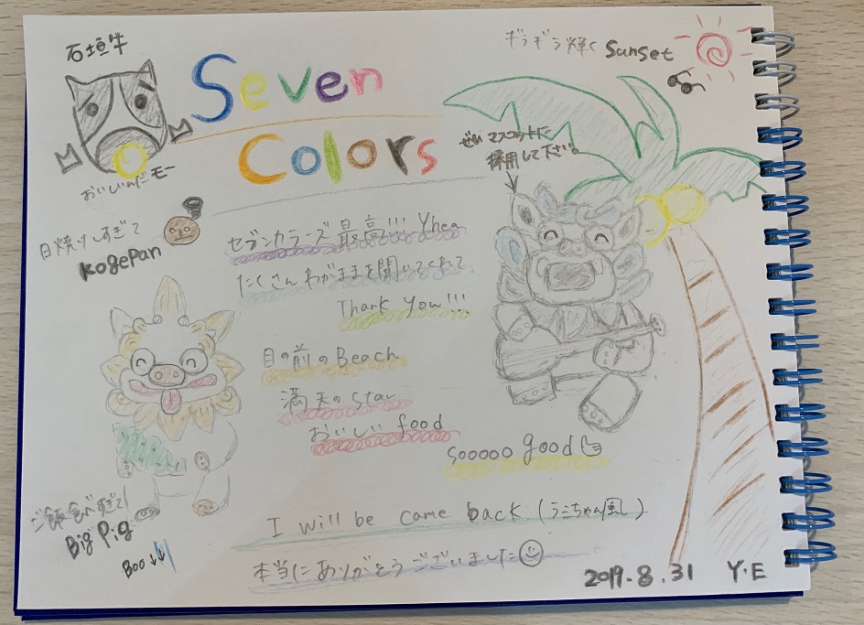 石垣牛
Seven
Colors
ギラギラ輝く Sunset
ぜひマスコットに
採用して下さい。
おいしいんだモー
日焼けしすぎて
kogepan
セブンカラーズ 最高!!! Yhea
たくさんわがままを聞いてくれて
Thank You!!!
目の前の Beach
満天の star
おいしい food
sooooo good
ご飯食べすぎて!
Big Pig
Boo↓↓
I will be came back (うみちゃん風)
本当にありがとうございました
2019.8.31 Y・E